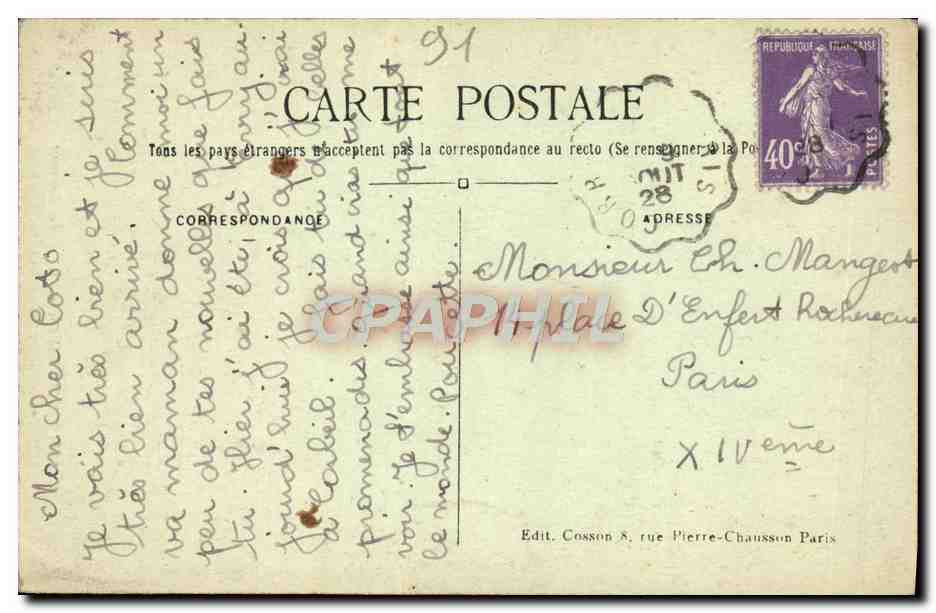 91
CARTE POSTALE
Tous les pays étrangers n'acceptent pas la correspondance au recto (Se renseigner à la Po
CORRESPONDANCE
ADRESSE
REPUBLIQUE FRANÇAISE
40c
POSTES
OUT
28
Mon cher Coco
Je vais très bien et je suis
très bien arrivé. Comment
va maman donne moi un
peu de tes nouvelles que fais
tu. Hier j'ai été, à au
jourd'hui je crois que j'irai
a Corbeil. Fais tu de belles
promenades. Quand vias tu me
voir. Je t'embrasse ainsi que tout
le monde. Poulette.
Monsieur Ch. Mangeot
11 place D'Enfert Rochereau
Paris
XIVeme
Edit. Cosson 8, rue Pierre-Chausson Paris
CPAPHIL